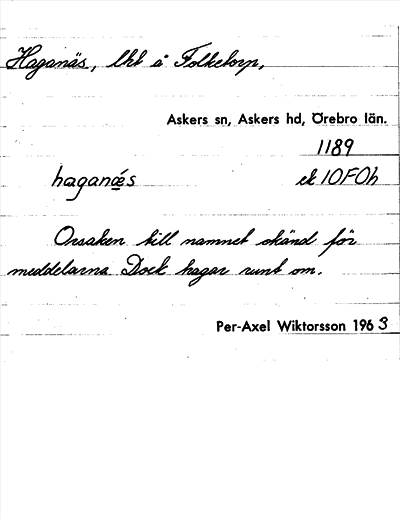 Haganäs, lht å Folketorp,
Askers sn, Askers hd, Örebro län.
1189
haganæs ek 10F0h
Orsaken till namnet okänd för
meddelarna Dock hagar runt om.
Per-Axel Wiktorsson 1963